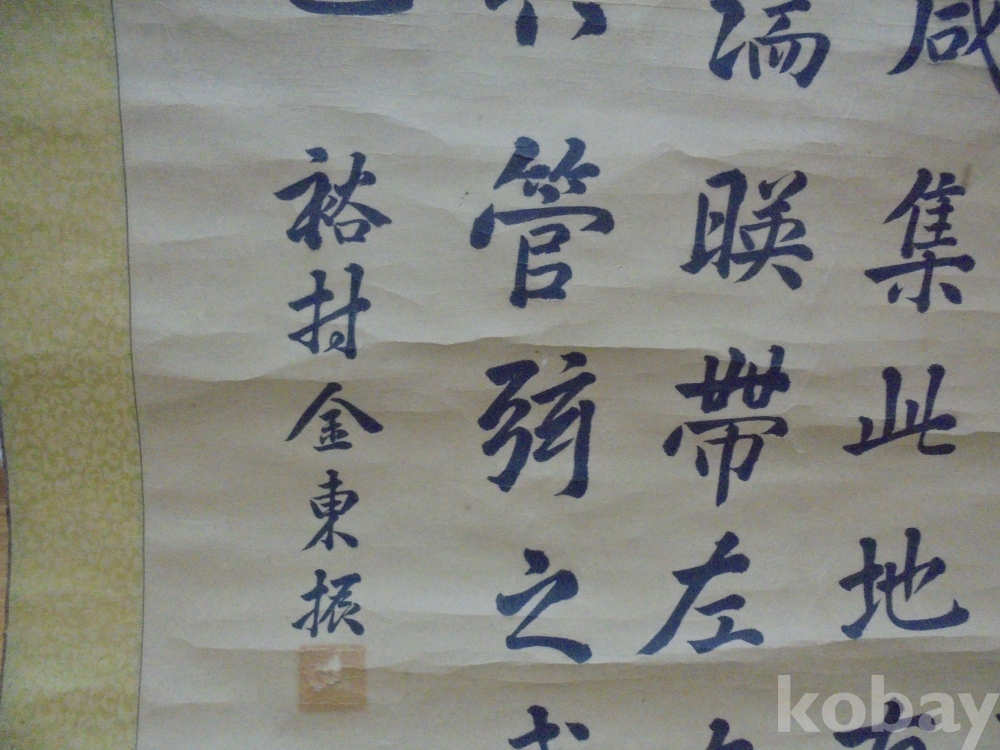 咸集此地有
湍暎帶左
管弦之
裕村金東振
kobay